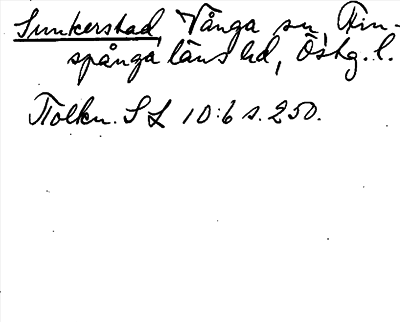 Sunkerstad, Vånga sn, Fin-
spånga läns hd, Östg. l.
Tolkn. SL 10:6 s. 250.